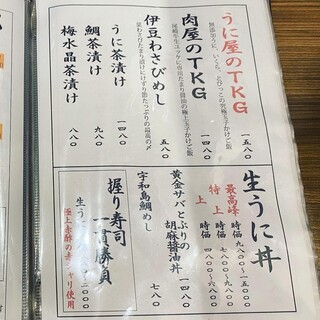 うに屋のTKG
無添加うに、いくら、とびっこの究極玉子かけご飯
一五八〇
肉屋のTKG
尾崎牛生ユッケに専用たまり醤油の極上玉子かけご飯
一四八〇
伊豆わさびめし
葉わさびたまり漬けにけずり節たっぷりの最高の〆
五八〇
うに茶漬け
一四八〇
鯛茶漬け
九八〇
梅水晶茶漬け
八八〇
生うに丼
最高峰 時価 九八〇〇〜一五〇〇〇
特上 時価 七八〇〇〜九八〇〇
上 時価 四八〇〇〜六八〇〇
黄金サバとぶりの
胡麻醤油丼
一四八〇
宇和島鯛めし
七八〇
握り寿司
一貫勝負
生うに
極上赤酢の赤シャリ使用